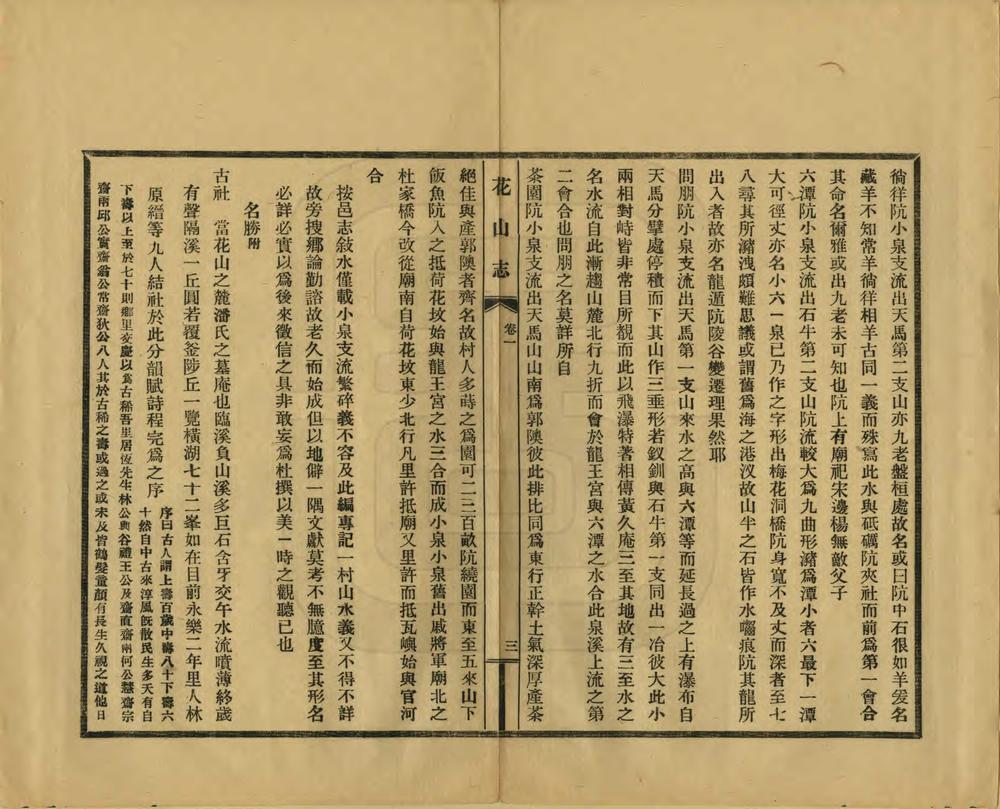 徜徉阬小泉支流出天馬第二支山亦九老盤桓處故名或曰阬中石很如羊爰名
藏羊不知常羊徜徉相羊古同一義而殊寫此水與砥礪阬夾社而前爲第一會合
其命名爾雅或出九老未可知也阬上有廟祀宋邊楊無敵父子
六潭阬小泉支流出石牛第二支山阬流較大爲九曲形瀦爲潭小者六最下一潭
大可徑丈亦名小六一泉已乃作之字形出梅花洞橋阬身寬不及丈而深者至七
八尋其所瀦洩頗難思議或謂舊爲海之港汊故山半之石皆作水囓痕阬其龍所
出入者故亦名龍遁阬陵谷變遷理果然耶
問朋阬小泉支流出天馬第一支山來水之高與六潭等而延長過之上有瀑布自
天馬分擘處停積而下其山作三垂形若釵釧與石牛第一支同出一冶彼大此小
兩相對峙皆非常目所覩而此以飛瀑特著相傳黃久庵三至其地故有三至水之
名水流自此漸趨山麓北行九折而會於龍王宮與六潭之水合此泉溪上流之第
二會合也問朋之名莫詳所自
茶園阬小泉支流出天馬山山南爲郭隩彼此排比同爲東行正幹土氣深厚產茶
花山志
卷一
三
絕佳與產郭隩者齊名故村人多蒔之爲園可二三百畝阬繞園而東至五來山下
飯魚阬入之抵荷花坟始與龍王宮之水三合而成小泉小泉舊出戚將軍廟北之
杜家橋今改從廟南自荷花坟東少北行凡里許抵廟又里許而抵瓦嶼始與官河
合
按邑志敍水僅載小泉支流繁碎義不容及此編專記一村山水義又不得不詳
故旁搜鄉論勤諮故老久而始成但以地僻一隅文獻莫考不無臆度至其形名
必詳必實以爲後來徵信之具非敢妄爲杜撰以美一時之觀聽已也
名勝附
古社　當花山之麓潘氏之墓庵也臨溪負山溪多巨石含牙交午水流噴薄終歲
有聲隔溪一丘圓若覆釜陟丘一覽橫湖七十二峯如在目前永樂二年里人林
原縉等九人結社於此分韻賦詩程完爲之序
序曰古人謂上壽百歲中壽八十下壽六
十然自中古來淳風旣散民生多夭有自
下壽以上至於七十則鄉里交慶以爲古稀吾里居恆先生林公與谷禮王公及齋直齋兩何公慧齋宗
齋兩邱公實齋翁公常齋狄公八人其於古稀之壽或過之或未及皆鶴髮童顏有長生久視之道他日